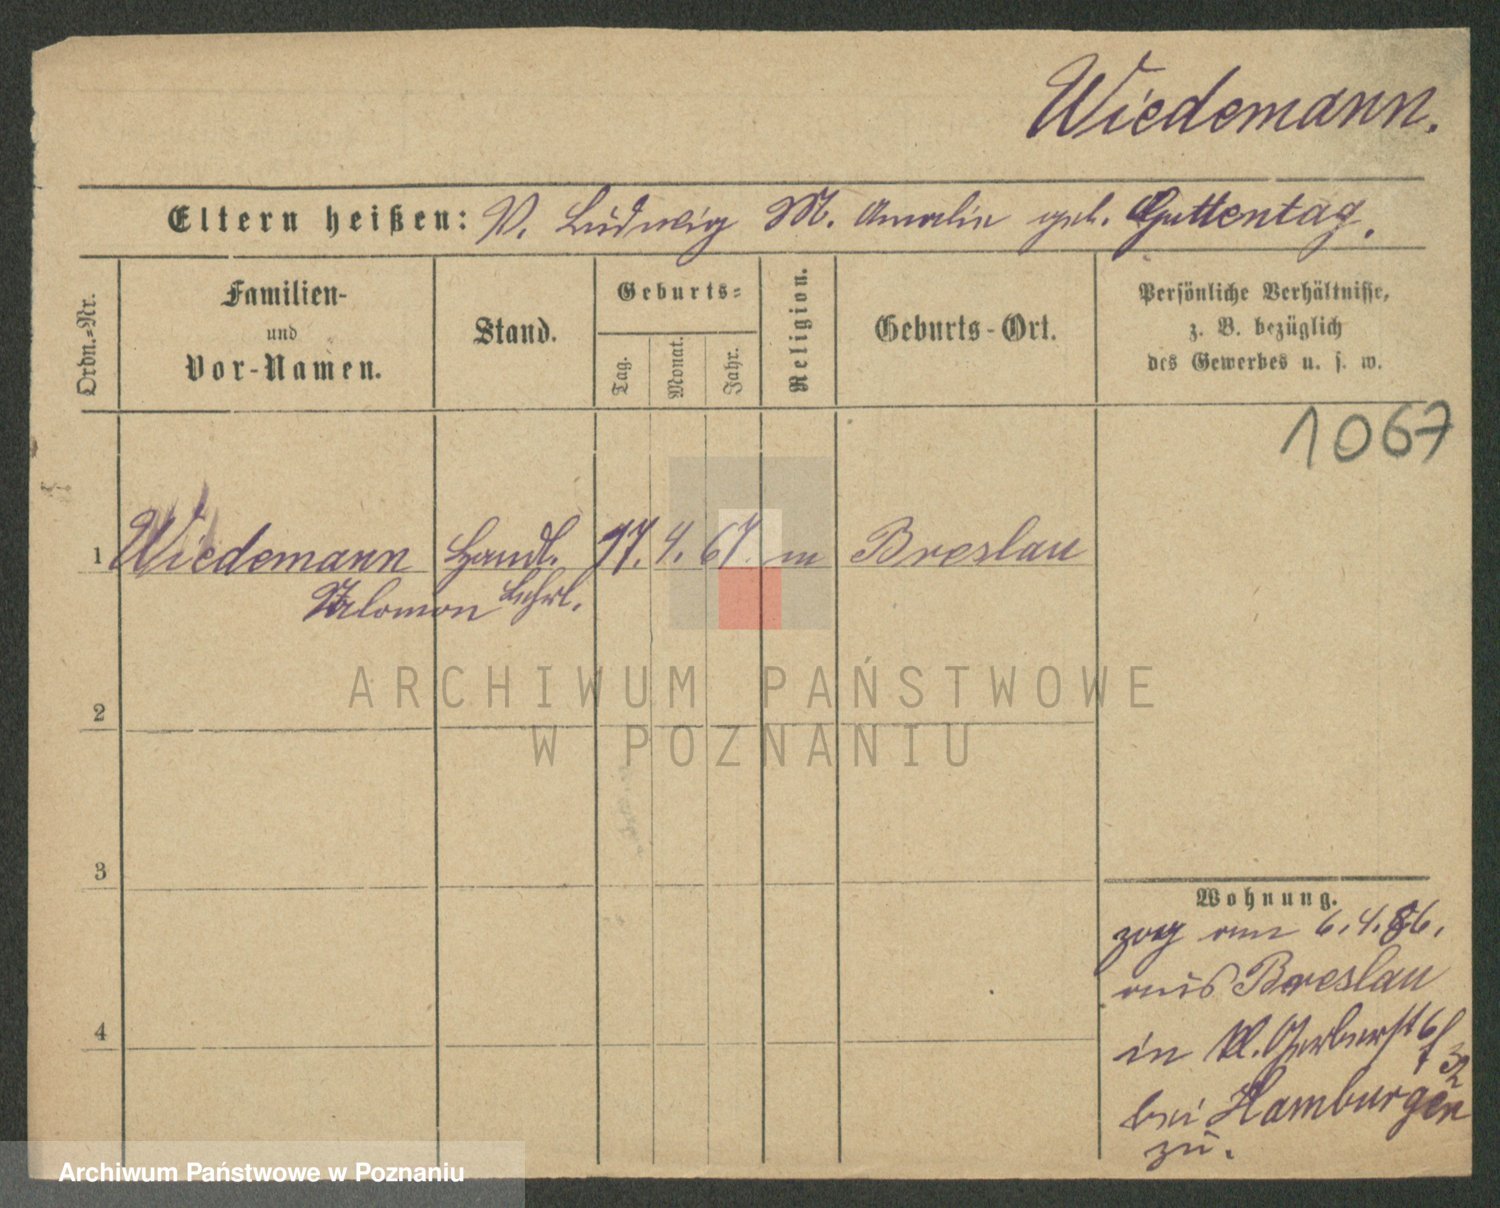 Wiedemann.
Eltern heißen: V. Ludwig M. Amalie geb. Guttentag.
Ordn.-Nr.
Familien-
und
Vor-Namen.
Stand.
Geburts-
Tag.
Monat.
Jahr.
Religion.
Geburts-Ort.
Persönliche Verhältnisse,
z. B. bezüglich
des Gewerbes u. s. w.
1067
1 Wiedemann Handl. 17. 4. 67. m Breslau
Salomon Lehrl.
ARCHIWUM PAŃSTWOWE
W POZNANIU
2
3
4
Wohnung.
zog am 6. 4. 86.
aus Breslau
in Kl. Gerberst 6/
bei Hamburger
zu.
Archiwum Państwowe w Poznaniu